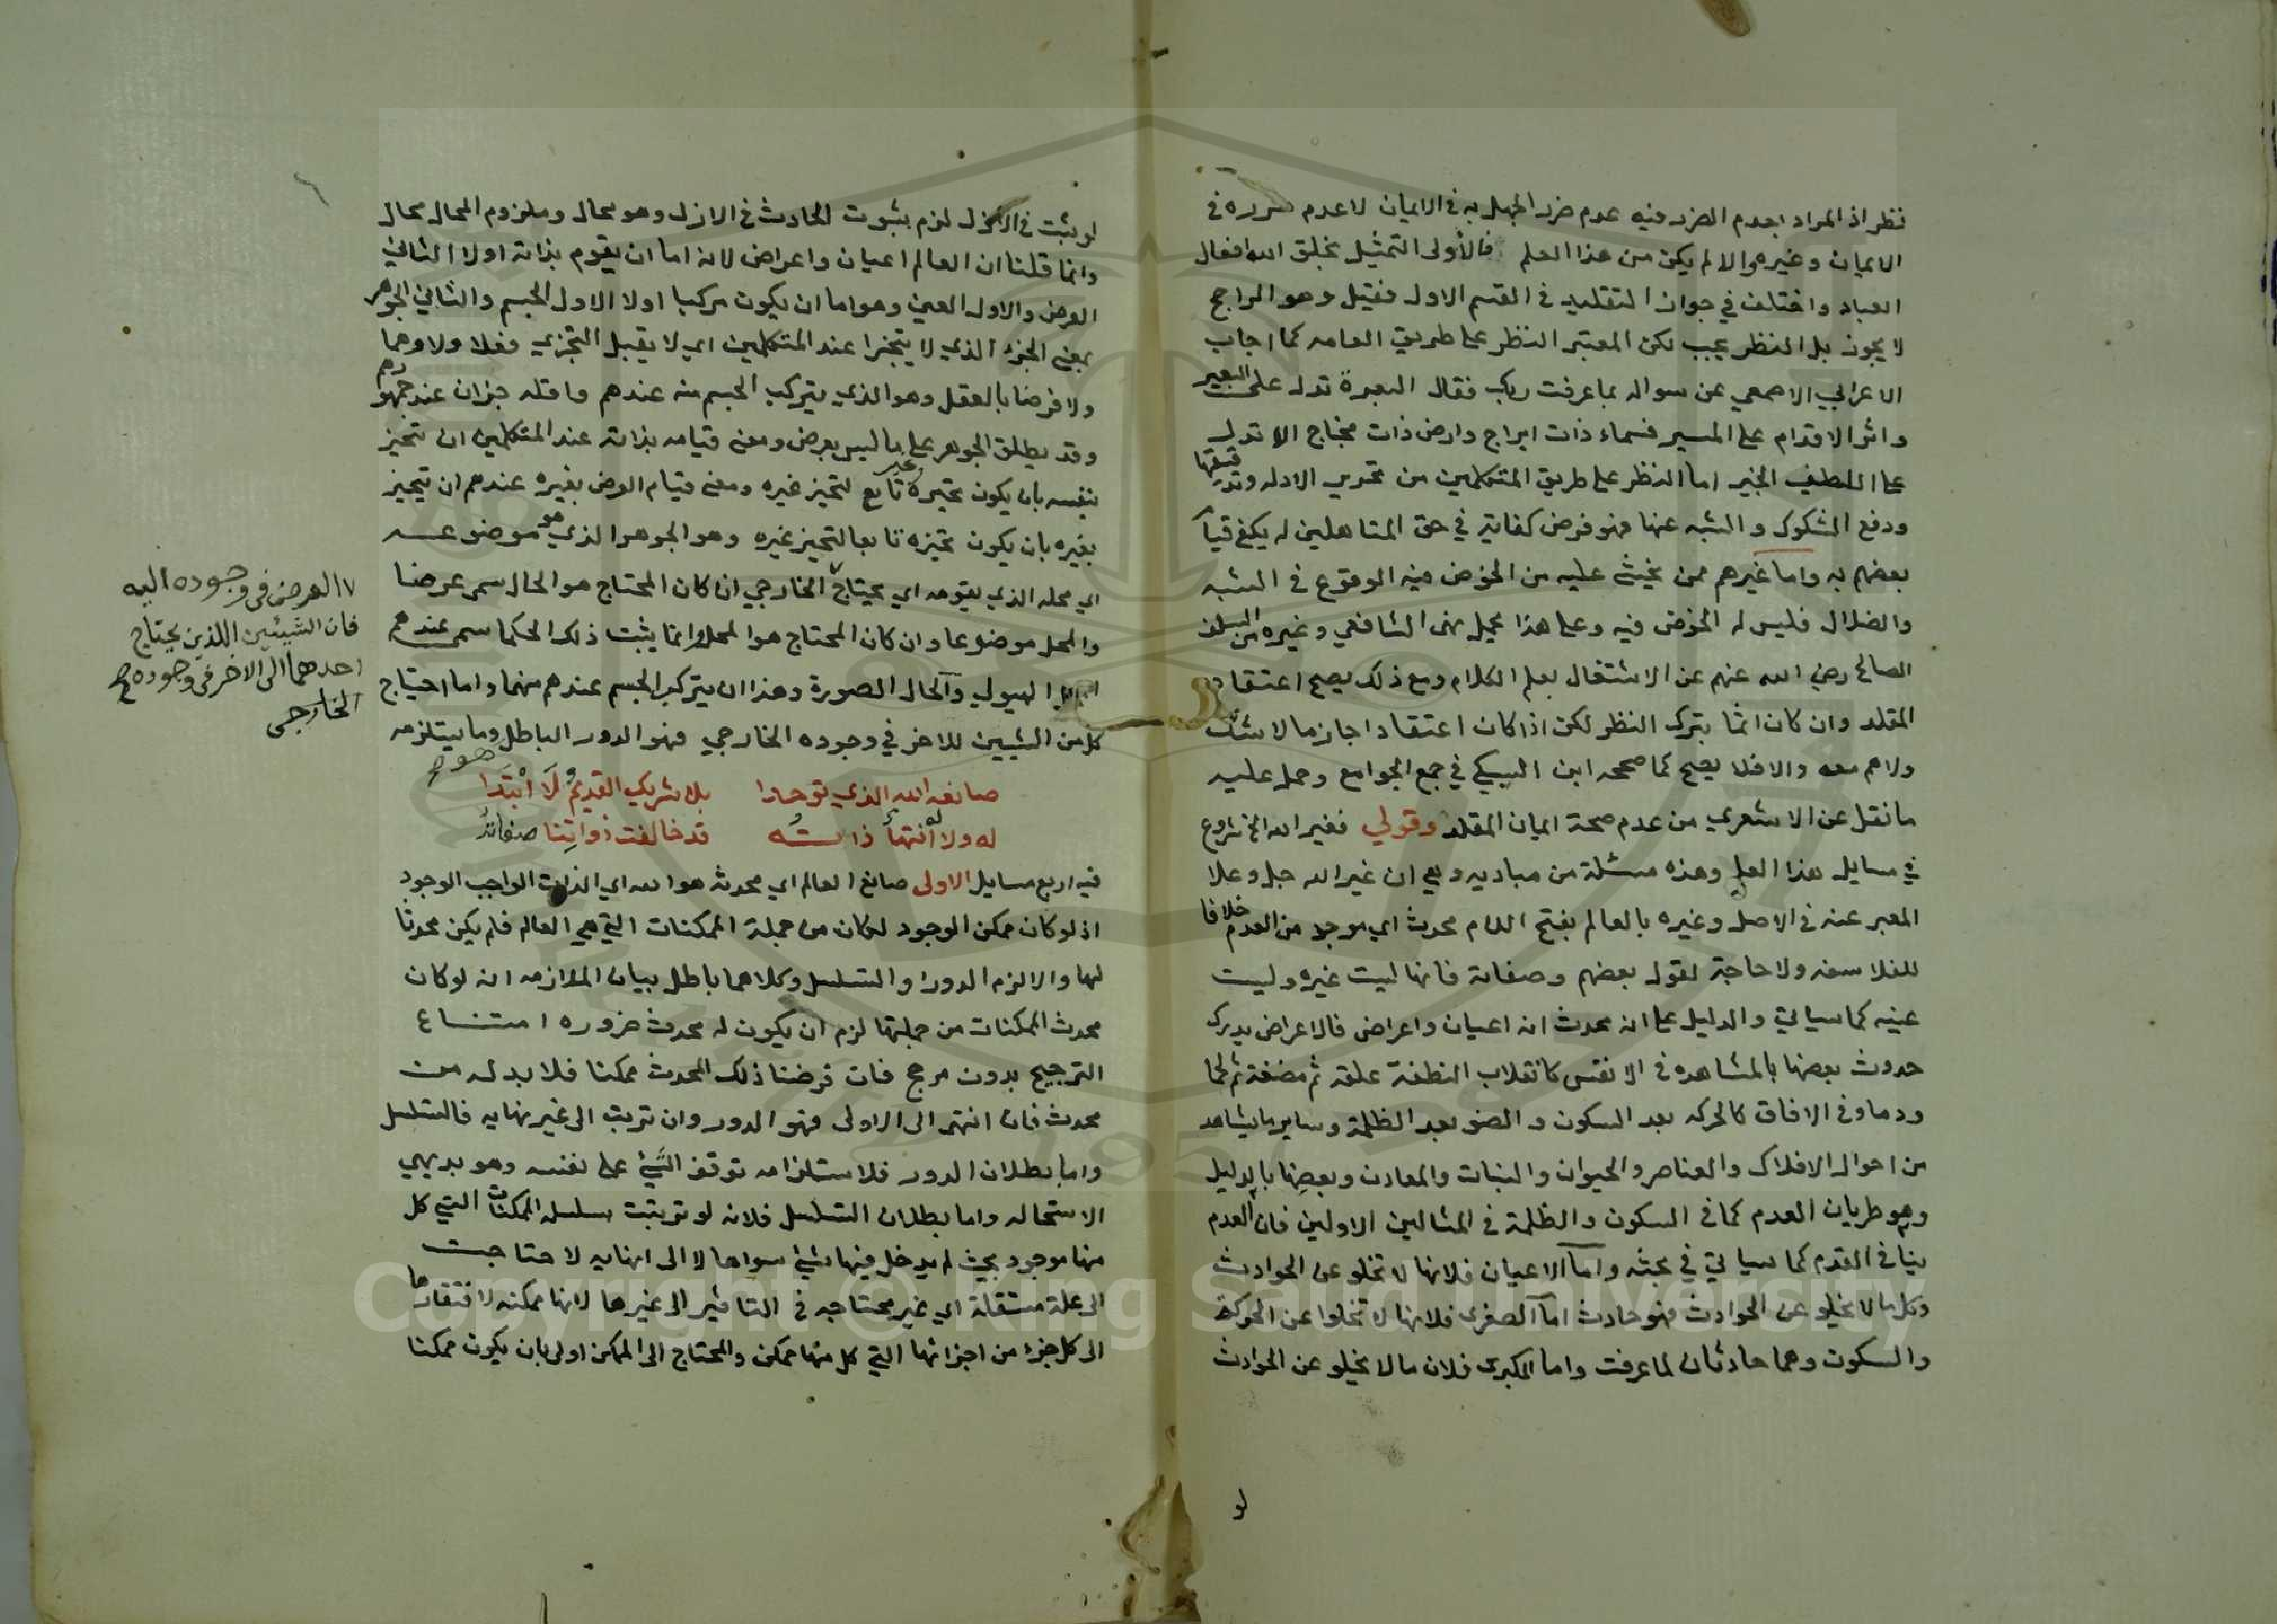 نظر اذ المراد بعدم الضرر فيه عدم ضرر الجهل به في الايمان لا عدم ضرره في
الايمان وغيره والا لم يكن من هذا العلم فالأولى التمثيل بخلق الله افعال
العباد واختلف في جواز التقليد في القسم الاول فقيل وهو الراجح
لا يجوز بل النظر يجب لكن المعتبر النظر على طريق العامه كما اجاب
الاعرابي الاصمعي عن سواله بما عرفت ربك فقال البعرة تدل على البعير
واثر الاقدام على المسير فسماء ذات ابراج وارض ذات فجاج الا تدل
على اللطيف الخبير اما النظر على طريق المتكلمين من تحرير الادله وتدقيقها
ودفع الشكوك والشبه عنها فهو فرض كفاية في حق المتاهلين له يكفي قيام
بعضهم به واما غيرهم ممن يخشى عليه من الخوض فيه الوقوع في الشبه
والضلال فليس له الخوض فيه وعلى هذا يحمل نهى الشافعي وغيره من السلف
الصالح رضي الله عنهم عن الاشتغال بعلم الكلام ومع ذلك يصح اعتقاد
المقلد وان كان اثما بترك النظر لكن اذا كان اعتقادا جازما لا شك
ولا هم معه والا فلا يصح كما صححه ابن السبكي في جمع الجوامع وحمل عليه
ما نقل عن الاشعري من عدم صحة ايمان المقلد وقولي فغير الله الخ شروع
في مسايل هذا العلم وهذه مسئلة من مباديه وهي ان غير الله جل وعلا
المعبر عنه في الاصل وغيره بالعالم بفتح اللام محدث اي موجد من العدم خلافا
للفلاسفه ولا حاجة لقول بعضهم وصفاته فانها ليت غيره وليت
عينه كما سياتي والدليل على انه محدث انه اعيان واعراض فالاعراض يدرك
حدوث بعضها بالمشاهده في الانفس كانقلاب النطفة علقه ثم مضغة ثم لحما
ودما وفي الافاق كالحركه بعد السكون والضو بعد الظلمة وساير ما يشاهد
من احوال الافلاك والعناصر والحيوان والنبات والمعادن وبعضها بالدليل
وهو طريان العدم كما في السكون والظلمة في المثالين الاولين فان العدم
ينافي القدم كما سياتي في بحثه واما الاعيان فلانها لا تخلو عن الحوادث
وكل ما لا يخلو عن الحوادث فهو حادث اما الصغرى فلانها لا تخلوا عن الحركة
والسكون وهما حادثان لما عرفت واما الكبرى فلان ما لا يخلو عن الحوادث
لو
لو ثبت في الازل لزم ثبوت الحادث في الازل وهو محال وملزوم المحال محال
وانما قلنا ان العالم اعيان واعراض لانه اما ان يقوم بذاته اولا الثاني
العرض والاول العين وهو اما ان يكون مركبا اولا الاول الجسم والثاني الجوهر
بمعنى الجزء الذي لا يتجزا عند المتكلمين اي لا يقبل التجزي فعلا ولا وهما
ولا فرضا بالعقل وهو الذي يتركب الجسم منه عندهم واقله جزان عند جمهورهم
وقد يطلق الجوهر على ما ليس بعرض ومعنى قيامه بذاته عند المتكلمين ان يتحيز
بنفسه بان يكون تحيزه غير تابع لتحيز غيره ومعنى قيام العرض بغيره عندهم ان يتحيز
بغيره بان يكون تحيزه تابعا لتحيز غيره وهو الجوهر الذي هو موضوعه
اي محله الذي يقومه اي يحتاج الخارجي ان كان المحتاج هو الحال سمى عرضا
والمحل موضوعا وان كان المحتاج هو المحل وانما يثبت ذلك الحكما سمى عندهم
المحل الهيولي والحال الصورة وهذا ان يتركب الجسم عندهم منهما واما احتياج
كل من الشيين للاخر في وجوده الخارجي فهو الدور الباطل وما يستلزمه
هو
العرض في وجوده اليه
فان الشيئين اللذين يحتاج
احدهما الى الاخر في وجوده
الخارجي
صانعه الله الذي توحدا بلا شريك القديمُ لَا ابْتِدَا
له ولا انْتِهأ ذاتُه قد خالفت ذواتِنا صفاتهُ
فيه اربع مسايل الاولى صانع العالم اي محدثه هو الله اي الذات الواجب الوجود
اذ لو كان ممكن الوجود لكان من جملة الممكنات التي هي العالم فلم يكن محدثا
لها والا لزم الدور او التسلسل وكلاهما باطل بيان الملازمه انه لو كان
محدث الممكنات من جملتها لزم ان يكون له محدث ضروره امتناع
الترجيح بدون مرجح فان فرضنا ذلك المحدث ممكنا فلا بد له من
محدث فان انتهى الى الاولى فهو الدور وان ترتب الى غير نهايه فالتسلسل
واما بطلان الدور فلاستلزامه توقف الشيء على نفسه وهو بديهي
الاستحاله واما بطلان التسلسل فلانه لو ترتبت سلسله الممكنات التي كل
منها موجود بحيث لم يدخل فيها شيء سواها لا الى انهايه لاحتاجت
الى علة مستقلة اي غير محتاجه في التاثير الى غيرها لانها ممكنه لافتقارها
الى كل جزء من اجزائها التي كل منها ممكن والمحتاج الى الممكن اولى بان يكون ممكنا
Copyright © King Saud University